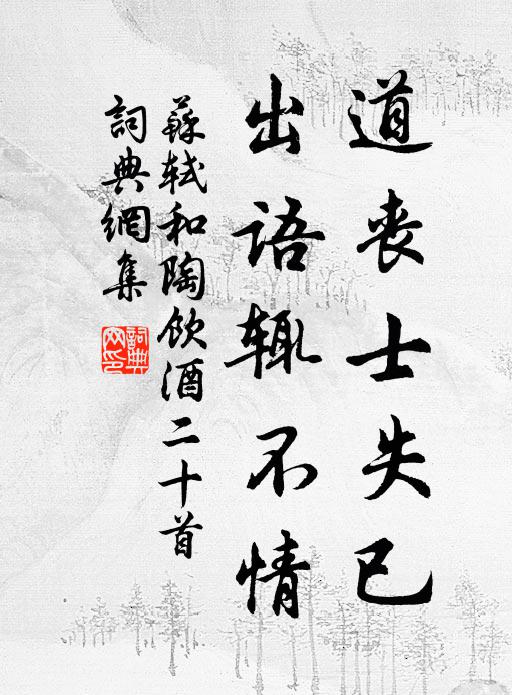 道丧士失已
出语辄不情
蘇轼和陶飲酒二十首
詞典網集
詞典网印